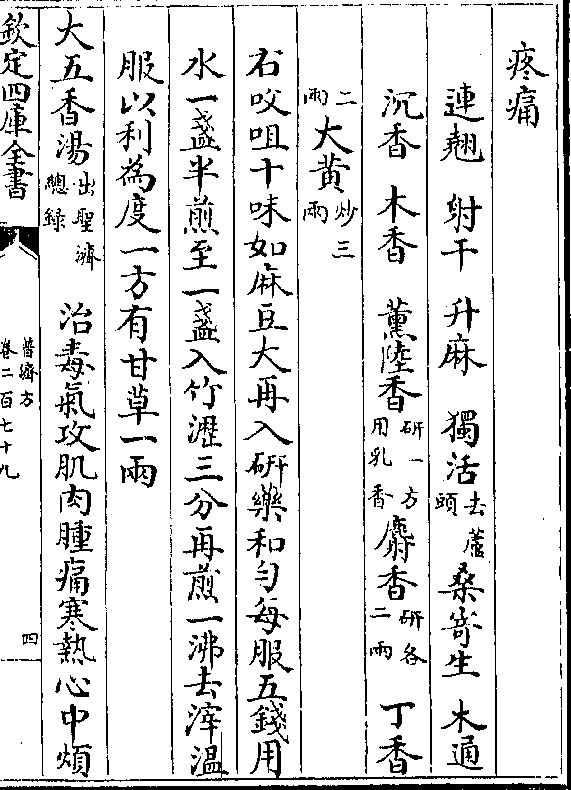 疼痛
連翹 射干 升麻 獨活去蘆頭 桑寄生 木通
沉香 木香 薫陸香研一方用乳香 麝香研各二兩 丁香
二兩 大黄炒三兩
右㕮咀十味如麻豆大再入研藥和匀每服五錢用
水一盞半煎至一盞入竹瀝三分再煎一沸去滓温
服以利為度一方有甘草一兩
大五香湯出聖濟總録 治毒氣攻肌肉腫痛寒熱心中煩
欽定四庫全書
普濟方
卷二百七十九
四